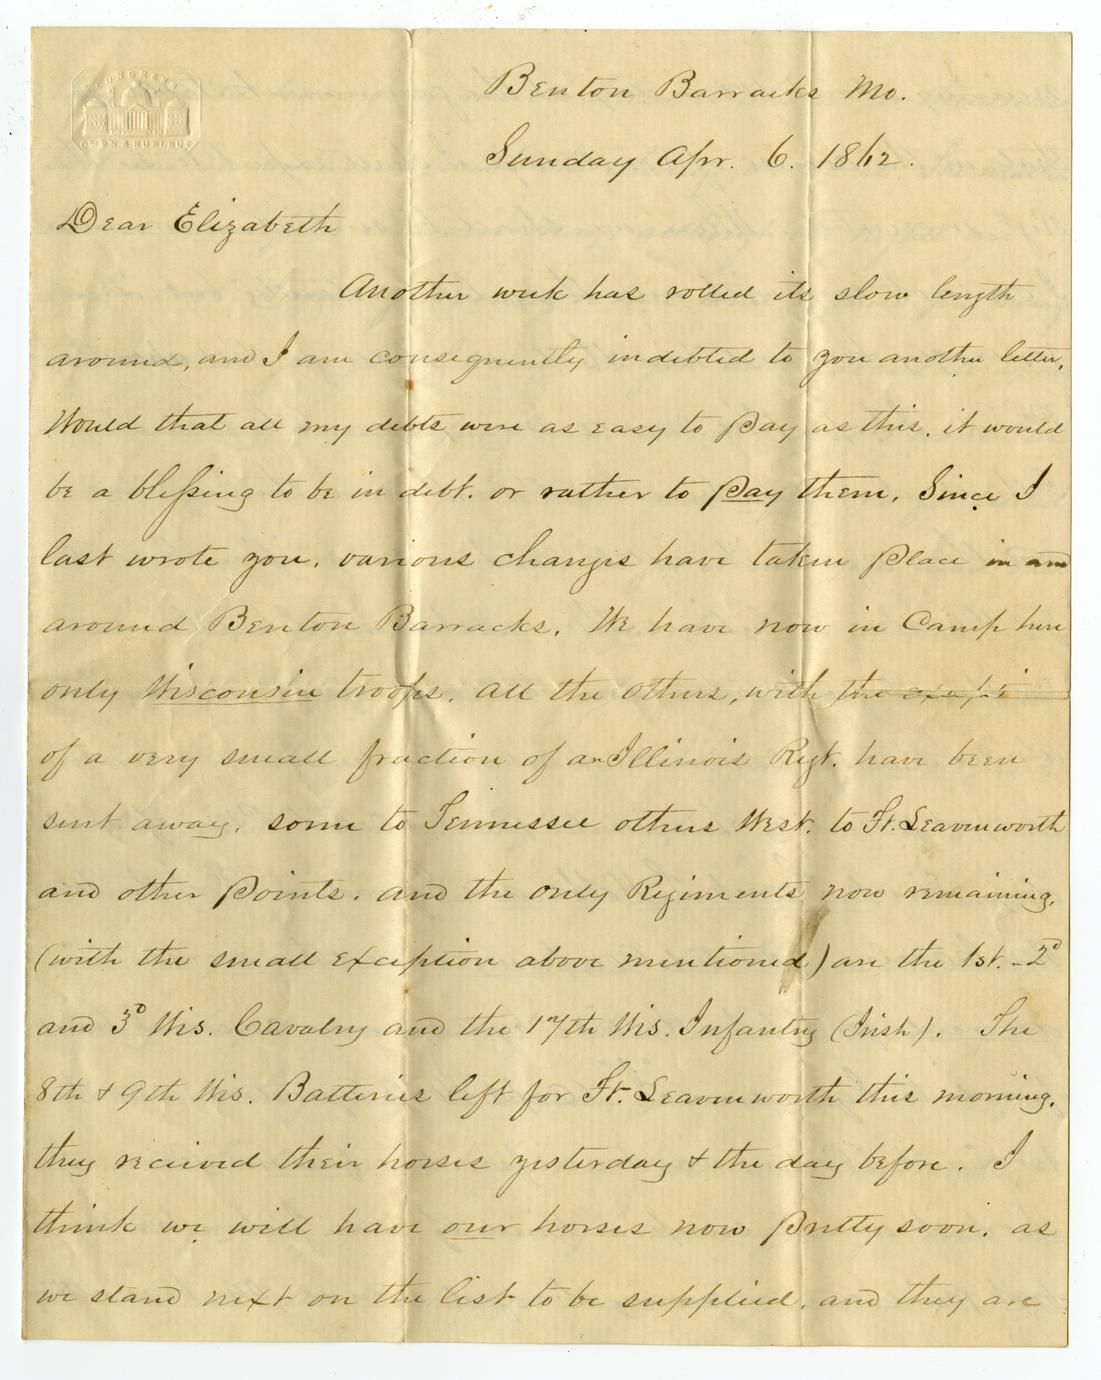 CONGRESS
OWEN & HURLBUT
Benton Barracks Mo.
Sunday Apr. 6. 1862.
Dear Elizabeth
Another week has rolled its slow length
around, and I am consequently indebted to you another letter,
Would that all my debts were as easy to pay as this. it would
be a blessing to be in debt. or rather to pay them. Since I
last wrote you. various changes have taken place in and
around Benton Barracks. We have now in Camp here
only Wisconsin troops. all the others, with the excepti
of a very small fraction of an Illinois Regt. have been
sent away. some to Tennessee others West. to Ft. Leavenworth
and other points. and the only Regiments now remaining.
(with the small exception above mentioned) are the 1st. - 2d
and 3d Wis. Cavalry and the 17th Wis. Infantry (Irish). The
8th & 9th Wis. Batteries left for Ft. Leavenworth this morning.
they received their horses yesterday & the day before. I
think we will have our horses now pretty soon. as
we stand next on the list to be supplied. and they are